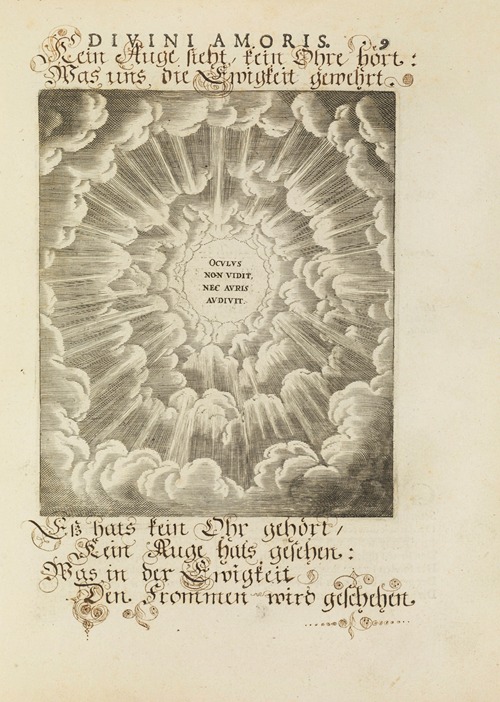 DIVINI AMORIS. 9
Kein Auge sieht, kein Ohre hört:
Was uns die Ewigkeit gewehrt.
OCVLVS
NON VIDIT,
NEC AVRIS
AVDIVIT.
Eß hats kein Ohr gehört,
Kein Auge hats gesehen:
Was in der Ewigkeit
Den Frommen wird geschehen